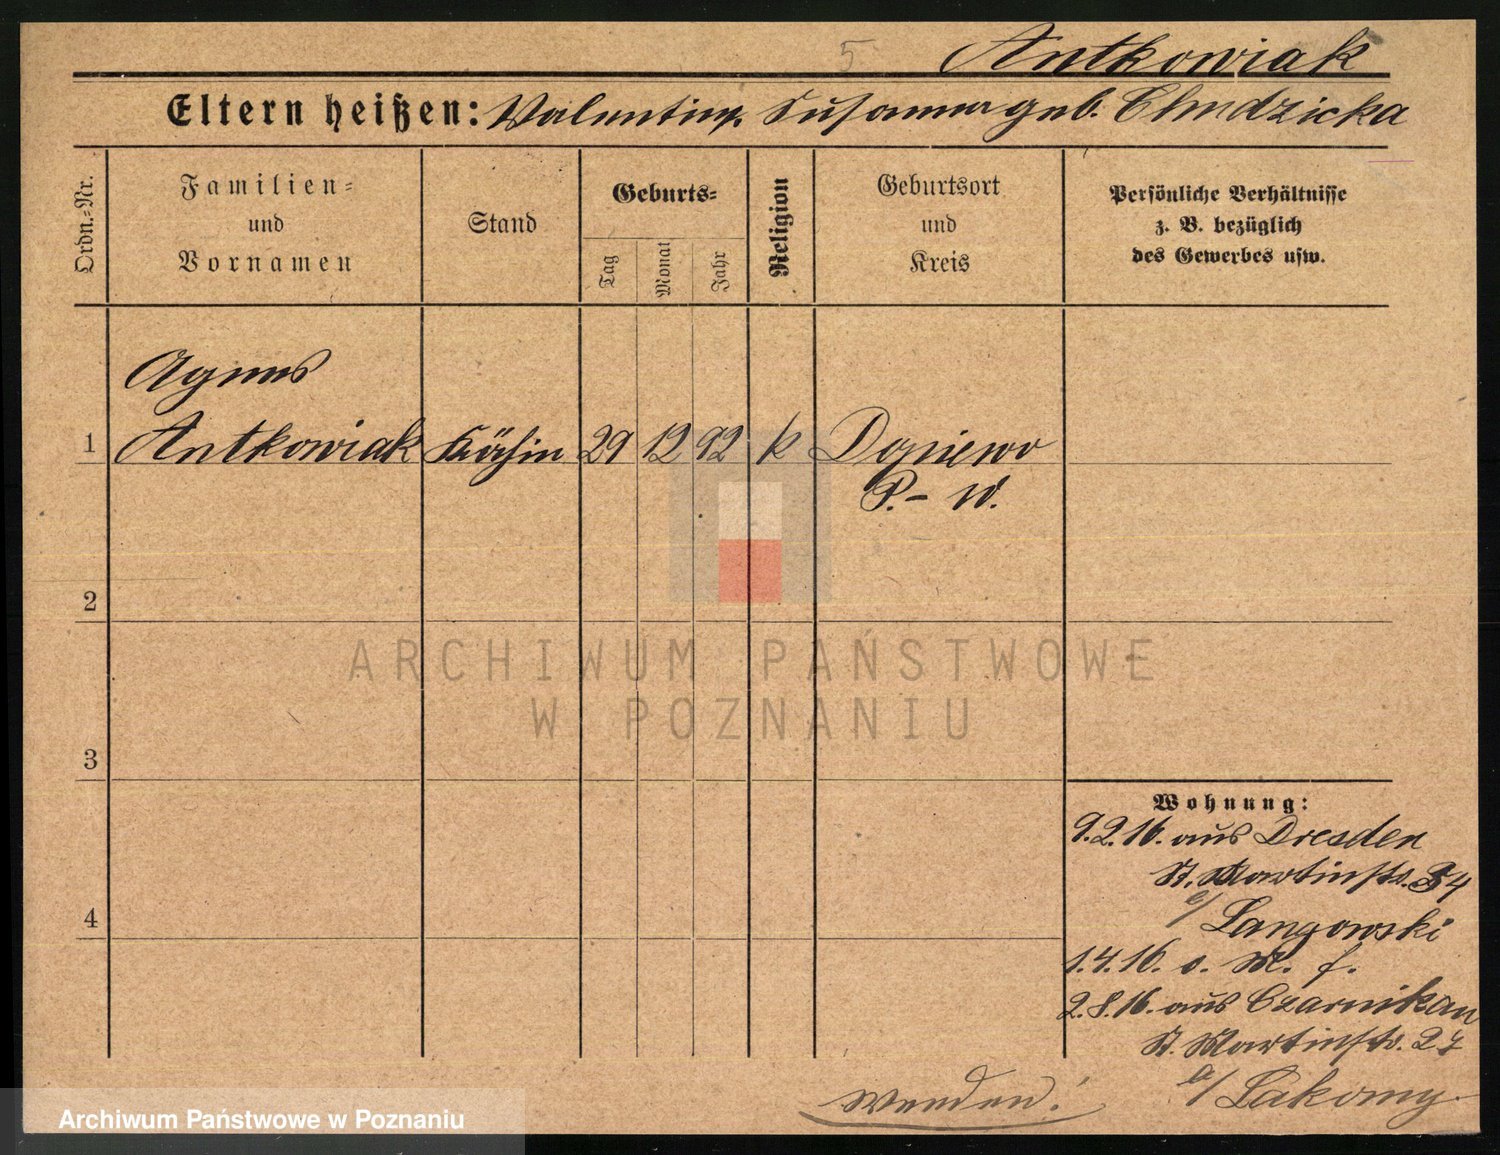 5 Antkowiak
Eltern heißen: Valentin, Susanna geb. Chudzicka
Ordn.-Nr.
Familien-
und
Vornamen
Stand
Geburts-
Tag
Monat
Jahr
Religion
Geburtsort
und
Kreis
Persönliche Verhältnisse
z. B. bezüglich
des Gewerbes usw.
Agnes
1 Antkowiak Köchin 29 12 92 k Dopiewo
P.- W.
2
ARCHIWUM PAŃSTWOWE
W POZNANIU
3
4
Wohnung:
9.2.16. aus Dresden
St. Martinstr. 34
b/ Langowski
1.4.16. o. M. f.
2.8.16. aus Czarnikau
St. Martinstr. 27
b/ Lakomy.
Wenden!
Archiwum Państwowe w Poznaniu